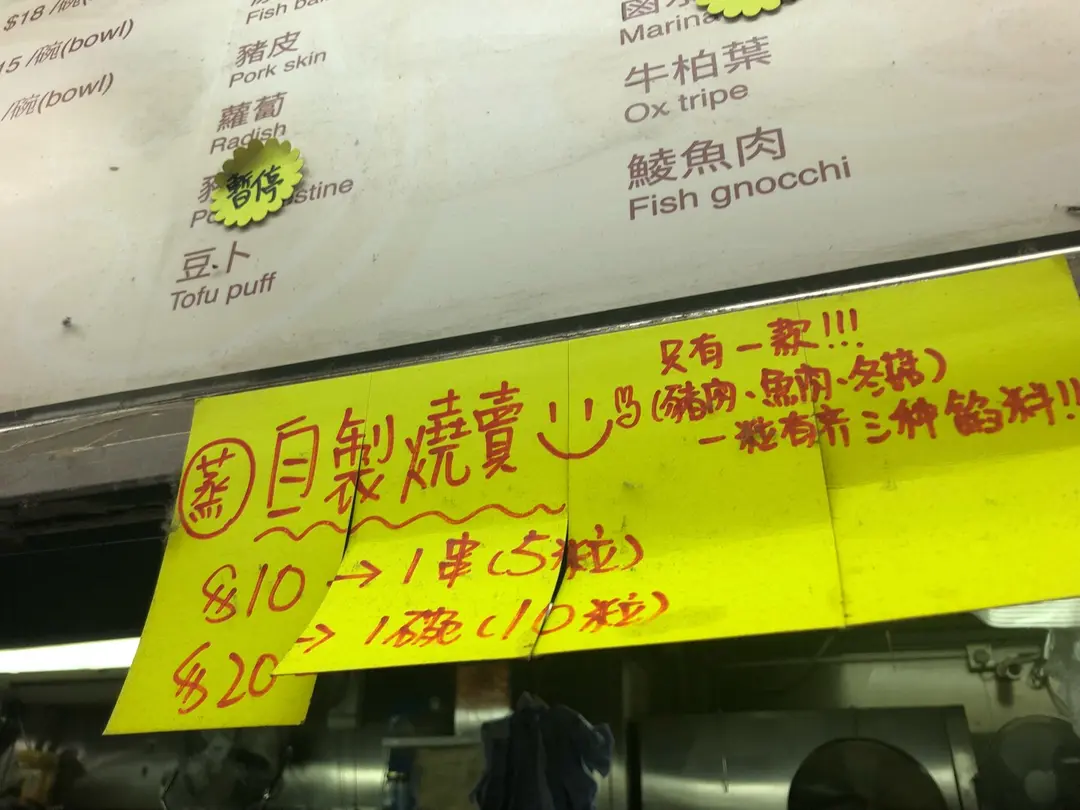 $18 /碗
15 /碗(bowl)
/碗(bowl)
Fish ball
豬皮
Pork skin
蘿蔔
Radish
暫停
豆卜
Tofu puff
牛柏葉
Ox tripe
鯪魚肉
Fish gnocchi
只有一款!!!
(豬肉、魚肉、冬菇)
一粒有齐三种餡料!!
蒸 自製燒賣
$10 → 1串(5粒)
$20 → 1碗(10粒)